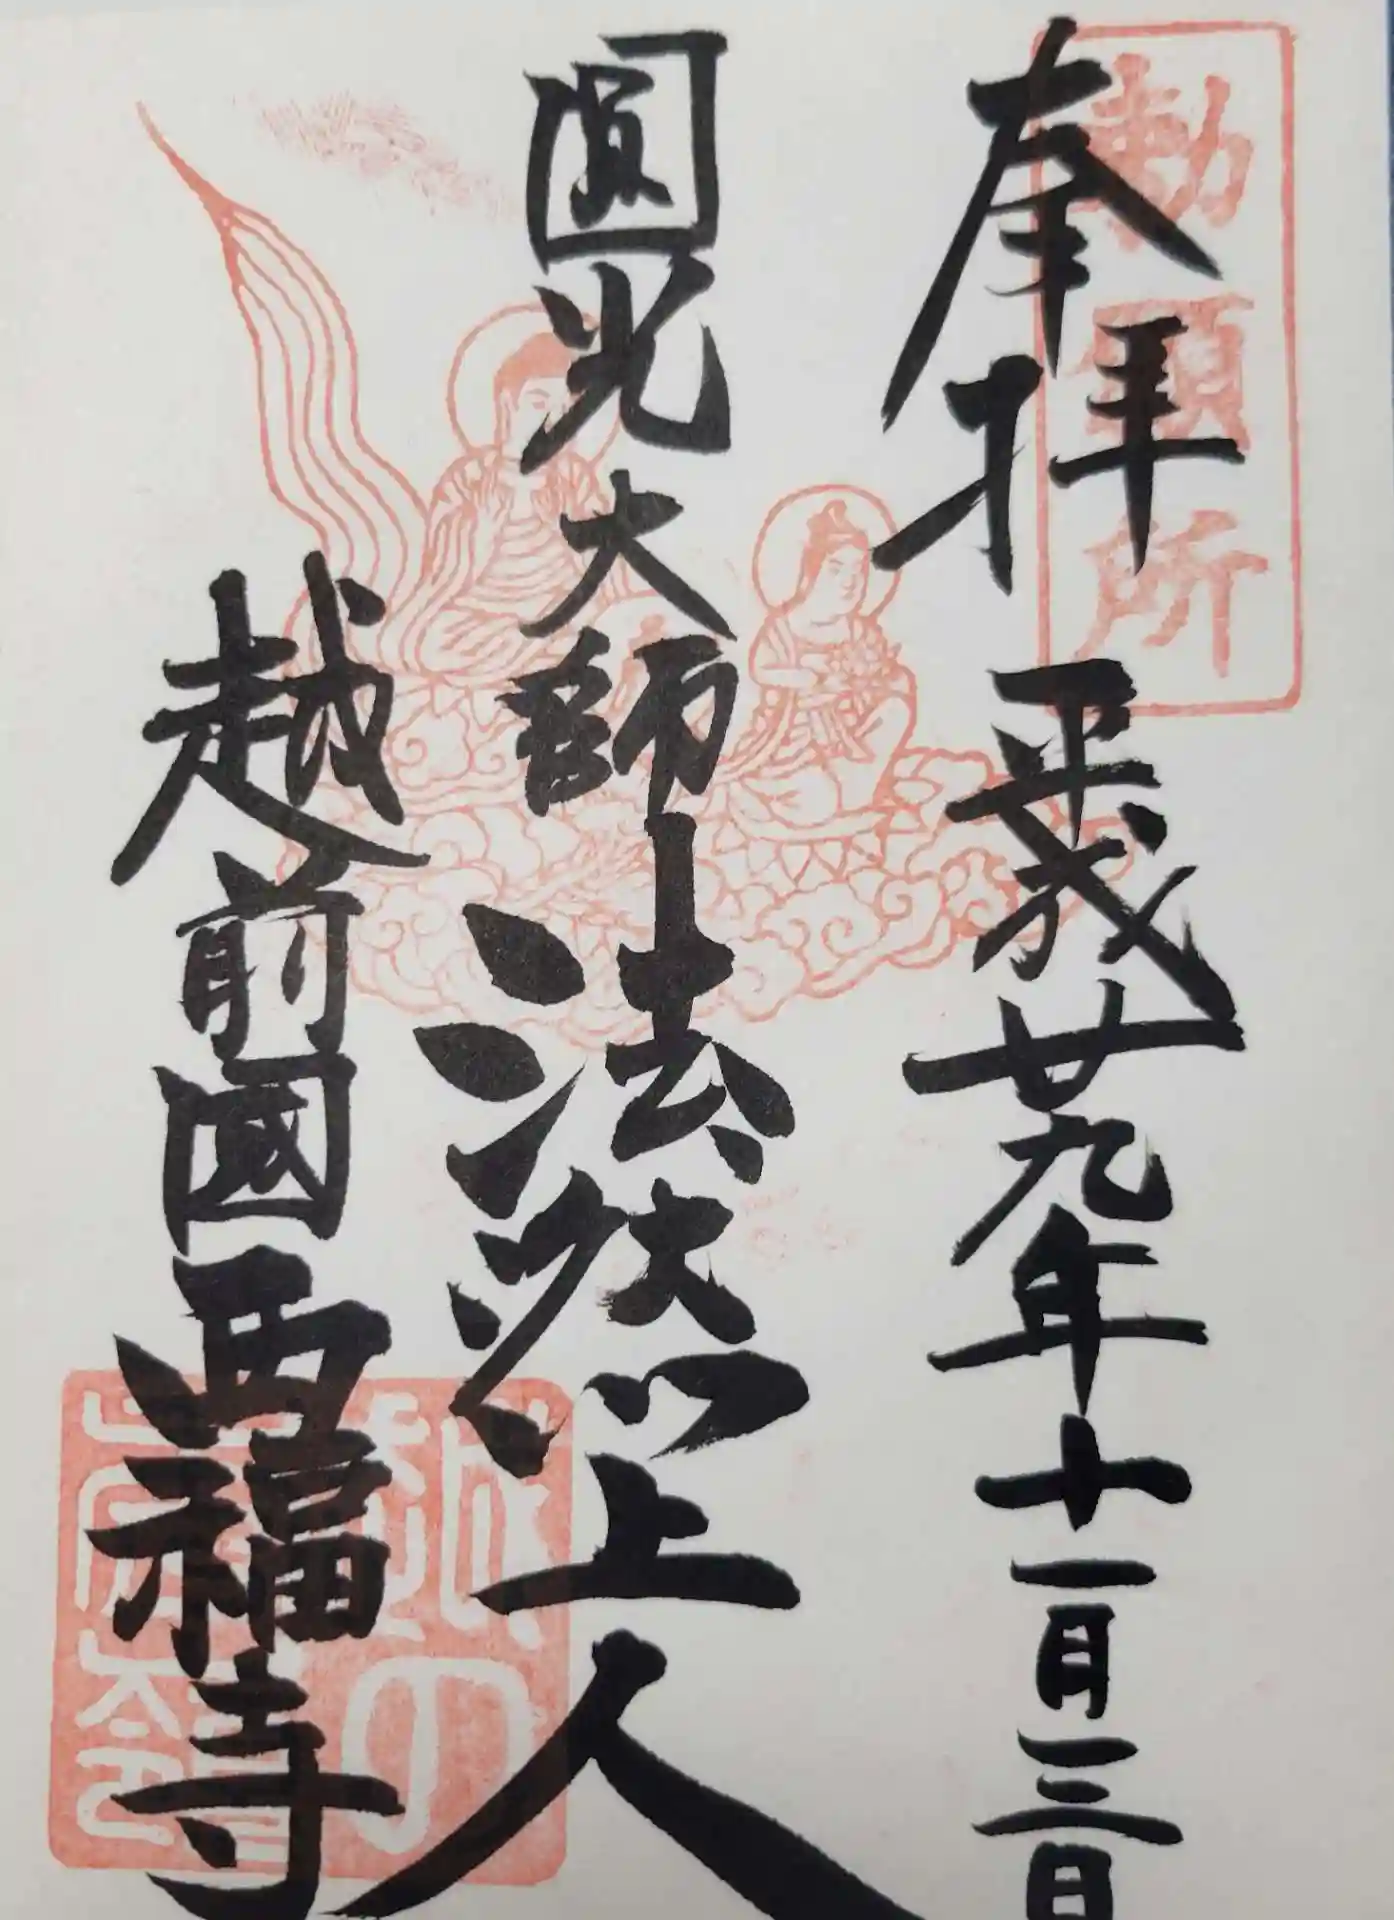 勅願所
奉拝 平成廿九年十一月三日
圓光大師法然上人
越前國西福寺